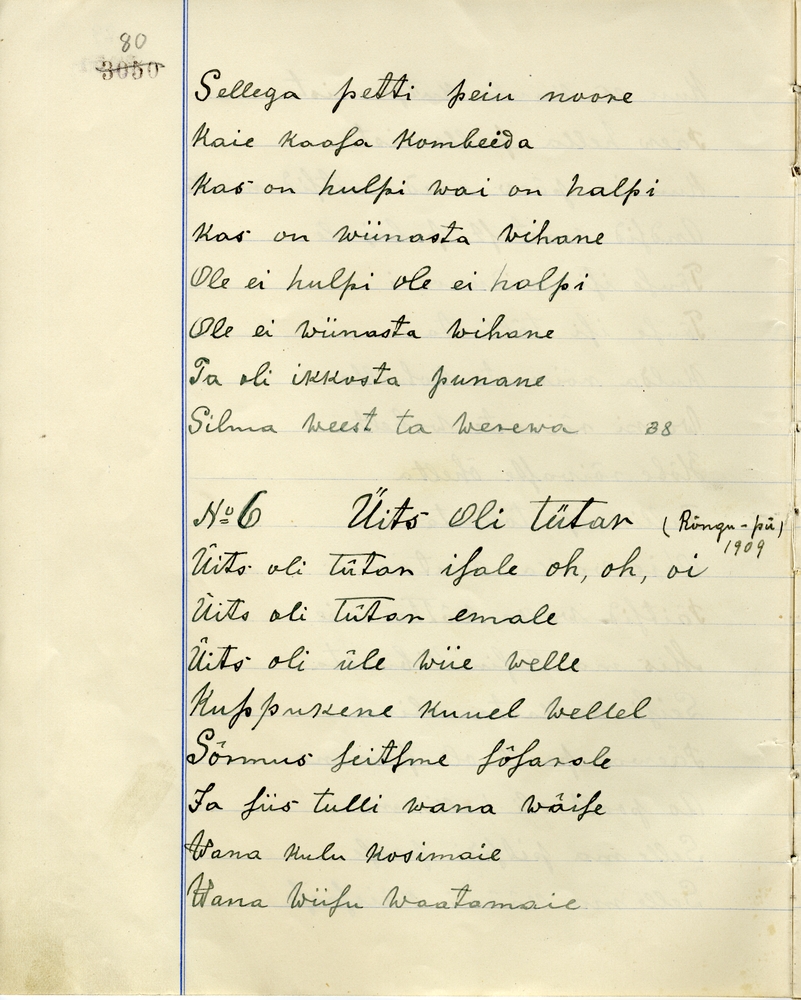 80
3050
Sellega petti peiu noore
Kaie kaasa kombeida
Kas on hulpi wai on halpi
Kas on wiinasta wihane
Ole ei hulpi ole ei halpi
Ole ei wiinasta wihane
Ta oli ikkosta punane
Silma weest ta werewa 38
No 6 Üits Oli tütar (Rõngu-pä)
1909
Üits oli tütar isale oh, oh, oi
Üits oli tütar emale
Üits oli üle wiie welle
Kuppukene kuuel wellel
Sõrmus seitsme sõsarale
Ja siis tulli wana wäise
Wana kulu kosimaie
Wana wiisu waatamaie